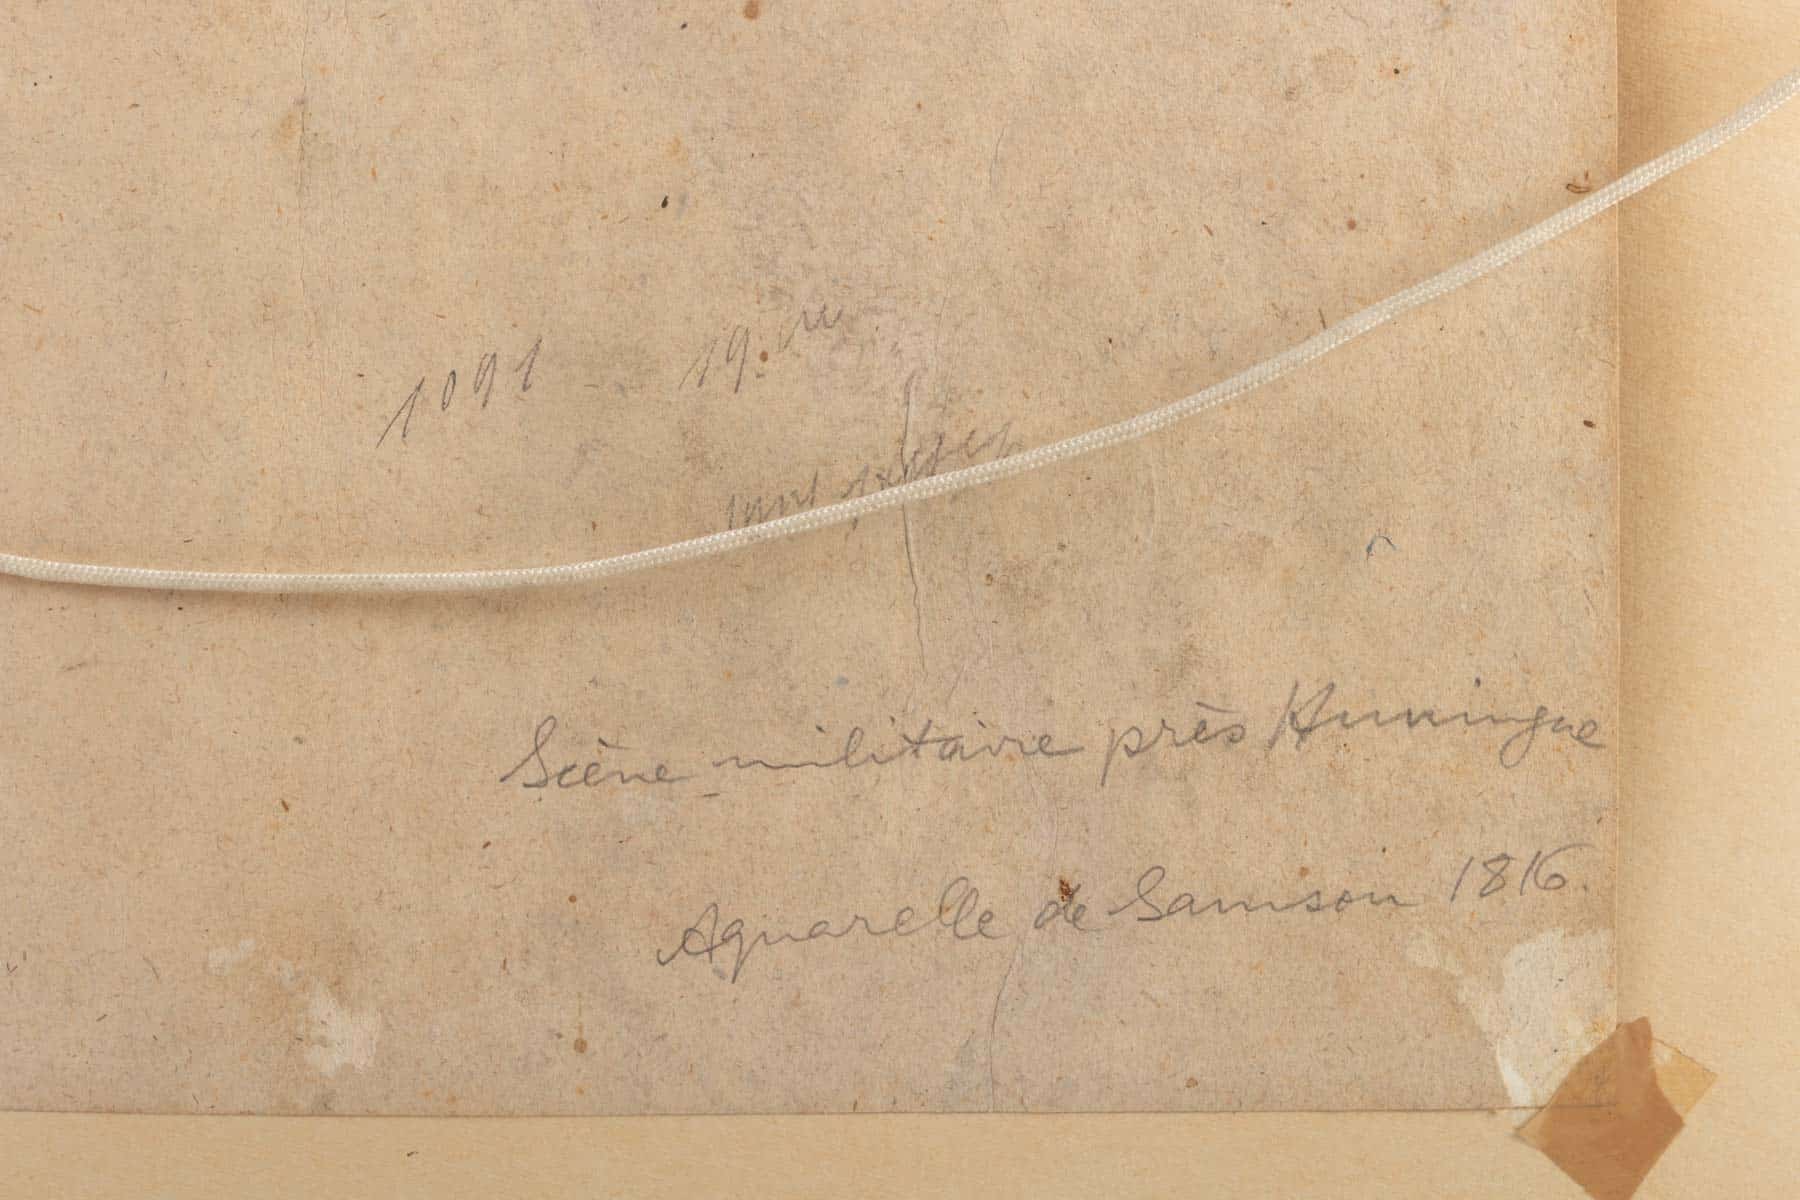 1091 19.
Scène militaire près Hunningue
Aquarelle de Samson 1816.